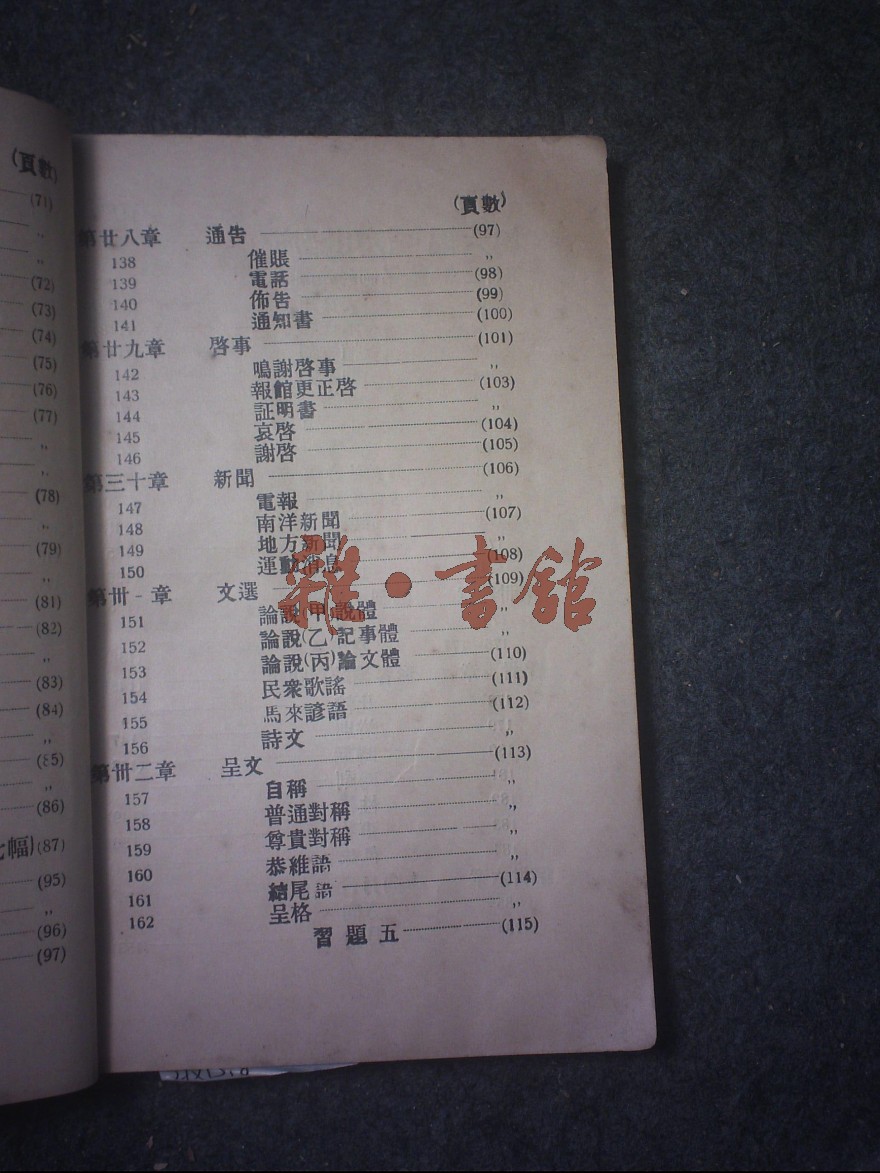 (頁數)
(71)
,,
,,
(72)
(73)
(74)
(75)
(76)
(77)
,,
,,
(78)
,,
(79)
,,
(81)
(82)
,,
(83)
(84)
,,
(85)
,,
(86)
七幅)(87)
(95)
,,
(96)
(97)
(頁數)
第廿八章 通告 (97)
138 催賬 ,,
139 電話 (98)
140 佈告 (99)
141 通知書 (100)
第廿九章 啓事 (101)
142 鳴謝啓事 ,,
143 報館更正啓 (103)
144 証明書 ,,
145 哀啓 (104)
146 謝啓 (105)
第三十章 新聞 (106)
147 電報 ,,
148 南洋新聞 (107)
149 地方新聞 ,,
150 運動消息 (108)
第卅一章 文選 (109)
151 論說(甲)說體
152 論說(乙)記事體 ,,
153 論說(丙)論文體 (110)
154 民衆歌謠 (111)
155 馬來諺語 (112)
156 詩文 ,,
第卅二章 呈文 (113)
157 自稱 ,,
158 普通對稱 ,,
159 尊貴對稱 ,,
160 恭維語 ,,
161 結尾語 (114)
162 呈格 ,,
習題五 (115)
雜·書館